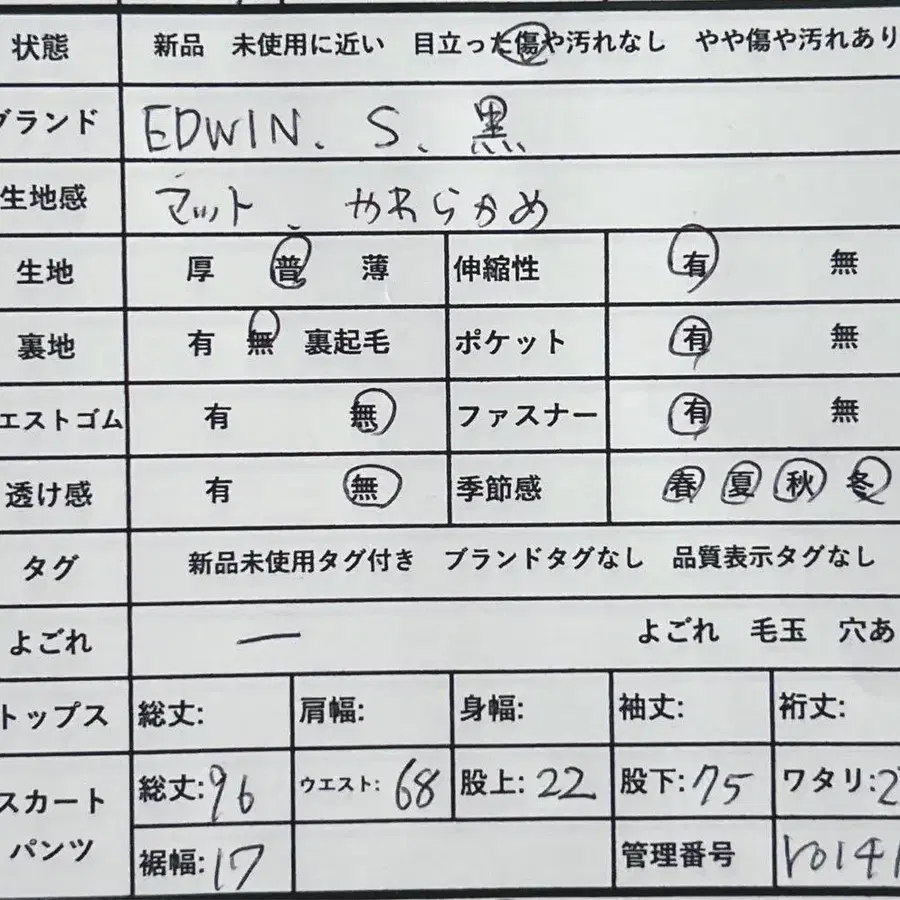 状態 新品 未使用に近い 目立った傷や汚れなし やや傷や汚れあり
ブランド EDWIN. S. 黒
生地感 マット、 やわらかめ
生地 厚 普 薄 伸縮性 有 無
裏地 有 無 裏起毛 ポケット 有 無
エストゴム 有 無 ファスナー 有 無
透け感 有 無 季節感 春 夏 秋 冬
タグ 新品未使用タグ付き ブランドタグなし 品質表示タグなし
よごれ ー よごれ 毛玉 穴あ
トップス 総丈: 肩幅: 身幅: 袖丈: 裄丈:
スカート パンツ 総丈: 96 ウエスト: 68 股上: 22 股下: 75 ワタリ: 2
裾幅: 17 管理番号